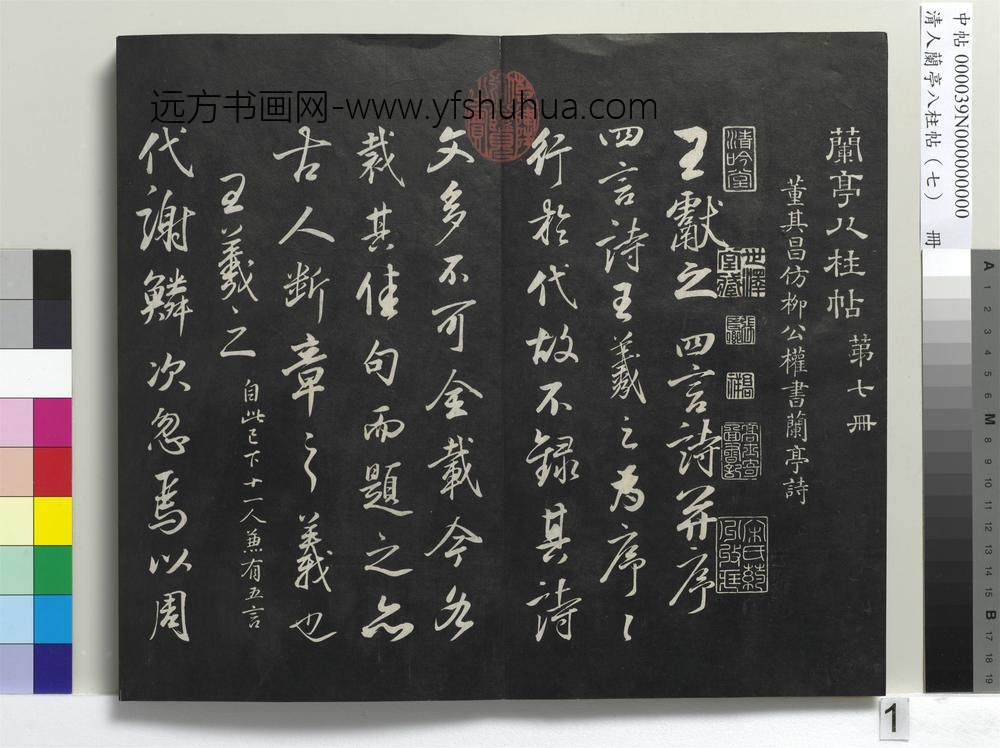 蘭亭八柱帖 第七冊
董其昌仿柳公權書蘭亭詩
清吟堂
王獻之四言詩并序
四言詩王羲之為序〻
行於代故不錄其詩
文多不可全載今各
裁其佳句而題之亦
古人斷章之義也
王羲之 自此已下十一人兼有五言
代謝鱗次忽焉以周
远方书画网-www.yfshuhua.com
中帖 000039N000000000
清人蘭亭八柱帖(七) 冊
A 1 2 3 4 5 6 M 8 9 10 11 12 13 14 15 B 17 18 19
1